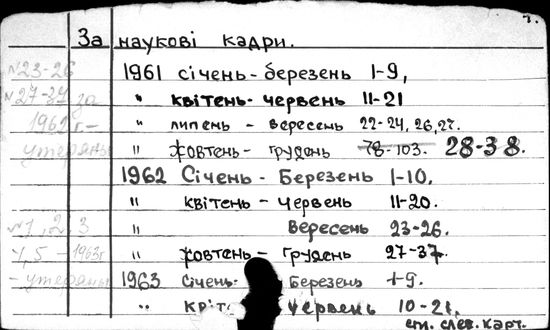 За наукові кадри.
№23-26 1961 січень - березень 1-9,
№27-37 за " квітень - червень 11-21
1962 г. - " липень - вересень 22-24, 26, 27.
утеряны " жовтень - грудень 78-103. 28-38.
1962 Січень - Березень 1-10.
" квітень - Червень 11-20.
№1, 2, 3 " Вересень 23-26.
4, 5 - 1963г " жовтень - Грудень 27-37.
- утеряны 1963 січень - Березень 1-9.
" квіт червень 10-21.
см. след. карт.